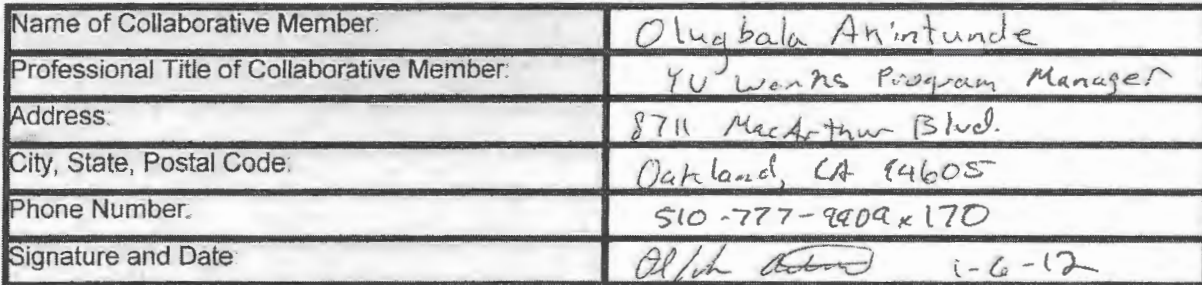 Name of Collaborative Member: Olugbala Akintunde
Professional Title of Collaborative Member: YU Works Program Manager
Address: 8711 MacArthur Blvd.
City, State, Postal Code: Oakland, CA 94605
Phone Number: 510-777-9909 x 170
Signature and Date 1-6-12